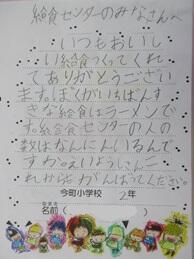 給食センターのみなさんへ
いつもおいし
い給食つくってくれ
てありがとうござい
ます。ぼくがいちばんす
きな給食はラーメンで
す。給食センターの人の
数はなんにんいるんで
すか。
これからもがんばってください。
今町小学校 2年
名前( )